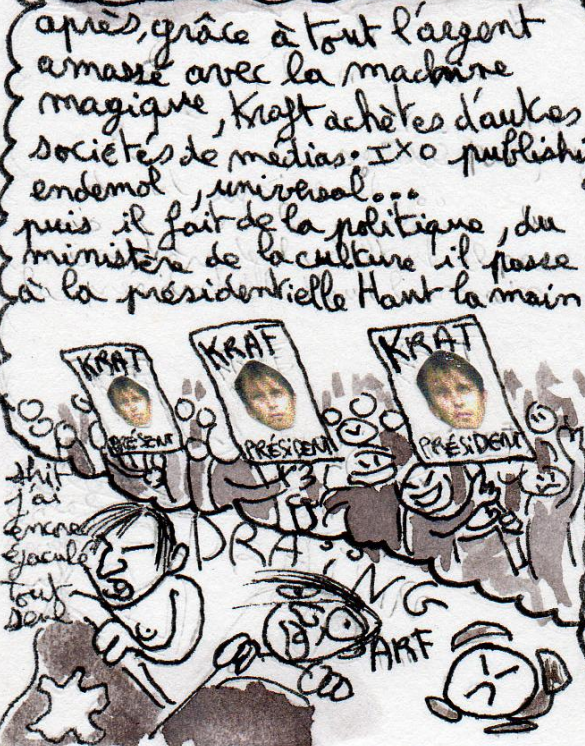 après, grâce à tout l'argent
amassé avec la machine
magique, Kraft achètes d'autres
sociétés de médias. IXO publishi
endemol, universal...
puis il fait de la politique, du
ministère de la culture il passe
à la présidentielle Haut la main
KRAT
PRÉSIDENT
KRAT
PRÉSIDENT
KRAT
PRÉSIDENT
shit
j'ai
encore
éjaculé
tout
seul
DRA
NG
ARF